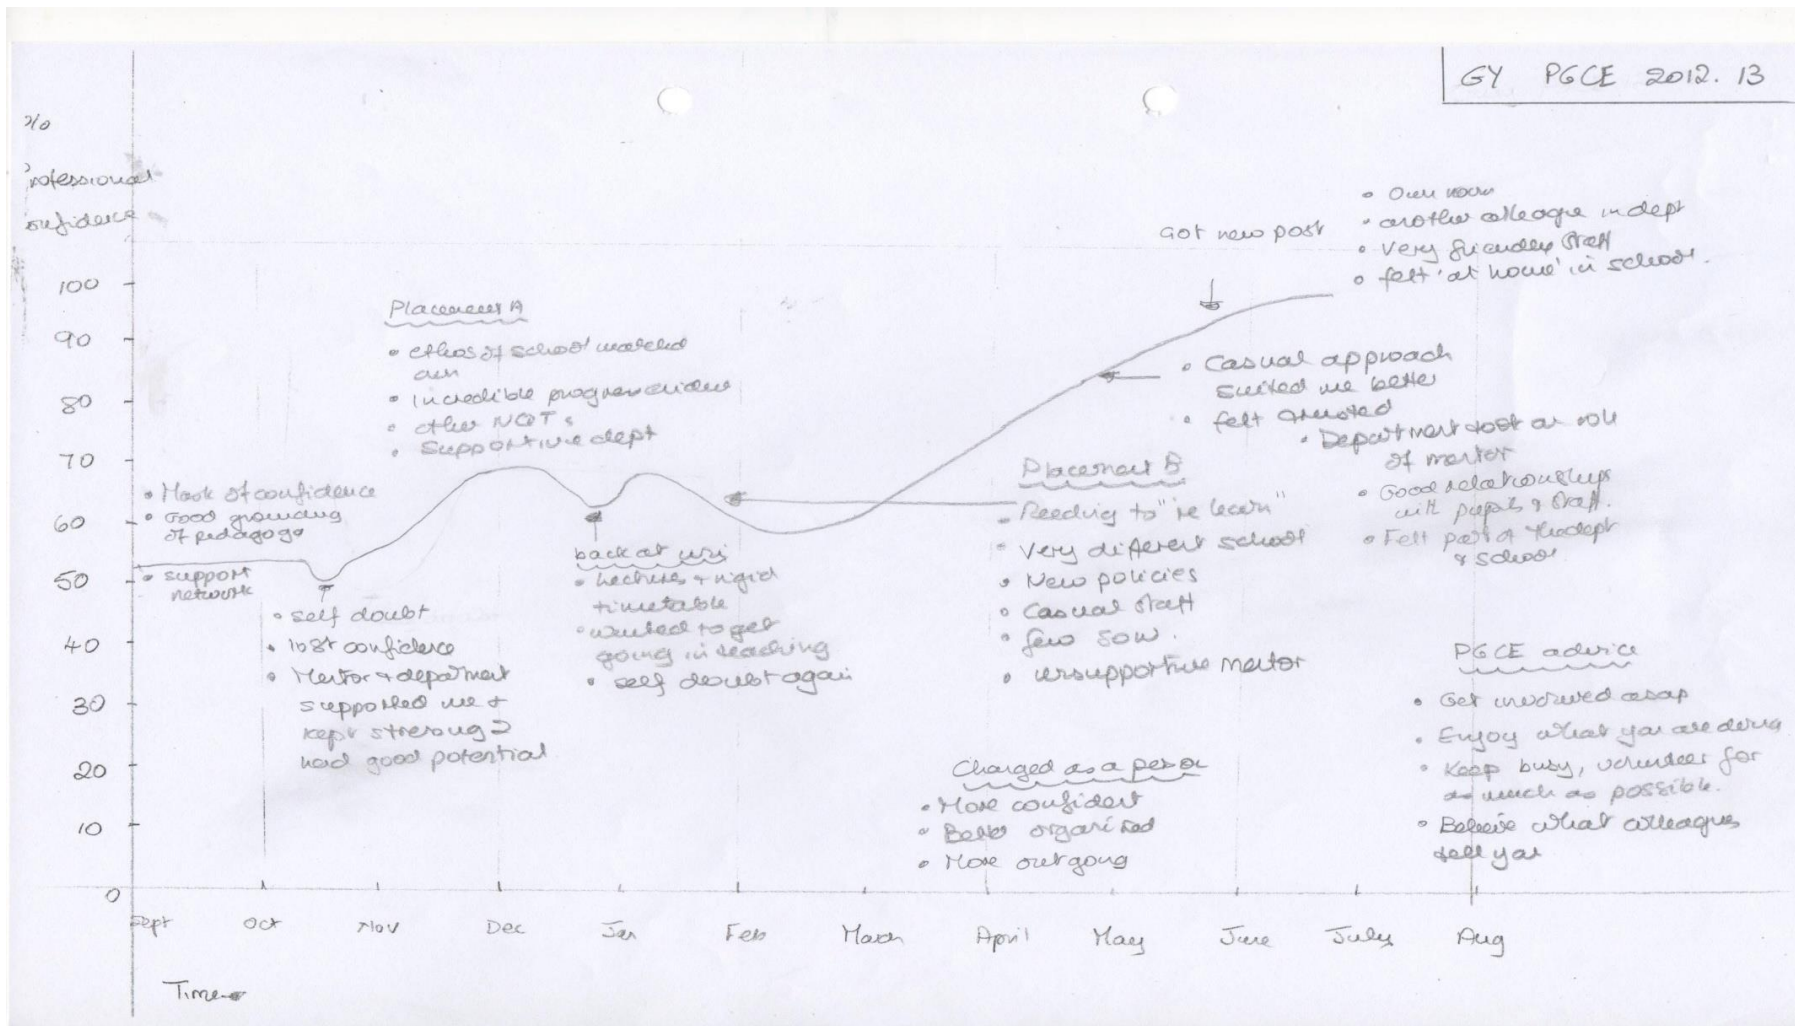 GY PGCE 2012. 13
%
rofessional
onfidence
100
90
80
70
60
50
40
30
20
10
0
Sept
Oct
Nov
Dec
Jan
Feb
March
April
May
June
July
Aug
Time
• Mask of confidence
• Good grounding
of pedagogy
• support
network
• self doubt
• lost confidence
• Mentor + department
supported me +
kept stressing I
had good potential
Placement A
• ethos of school matched
own
• incredible progress evident
• other NQTs
• Supportive dept
back at uni
• Lectures + rigid
timetable
• wanted to get
going in teaching
• self doubt again
Placement B
• Needing to "re learn"
• Very different school
• New policies
• Casual staff
• few SOW.
• unsupportive mentor
• Casual approach
suited me better
• felt trusted
• Department took on role
of mentor
• Good relationships
with pupils & staff.
• Felt part of the dept
& school
Got new post
• Own room
• another colleague in dept
• Very friendly staff
• felt 'at home' in school.
Changed as a person
• More confident
• Better organised
• More outgoing
PGCE advice
• Get involved asap
• Enjoy what you are doing
• Keep busy, volunteer for
as much as possible.
• Believe what colleagues
tell you